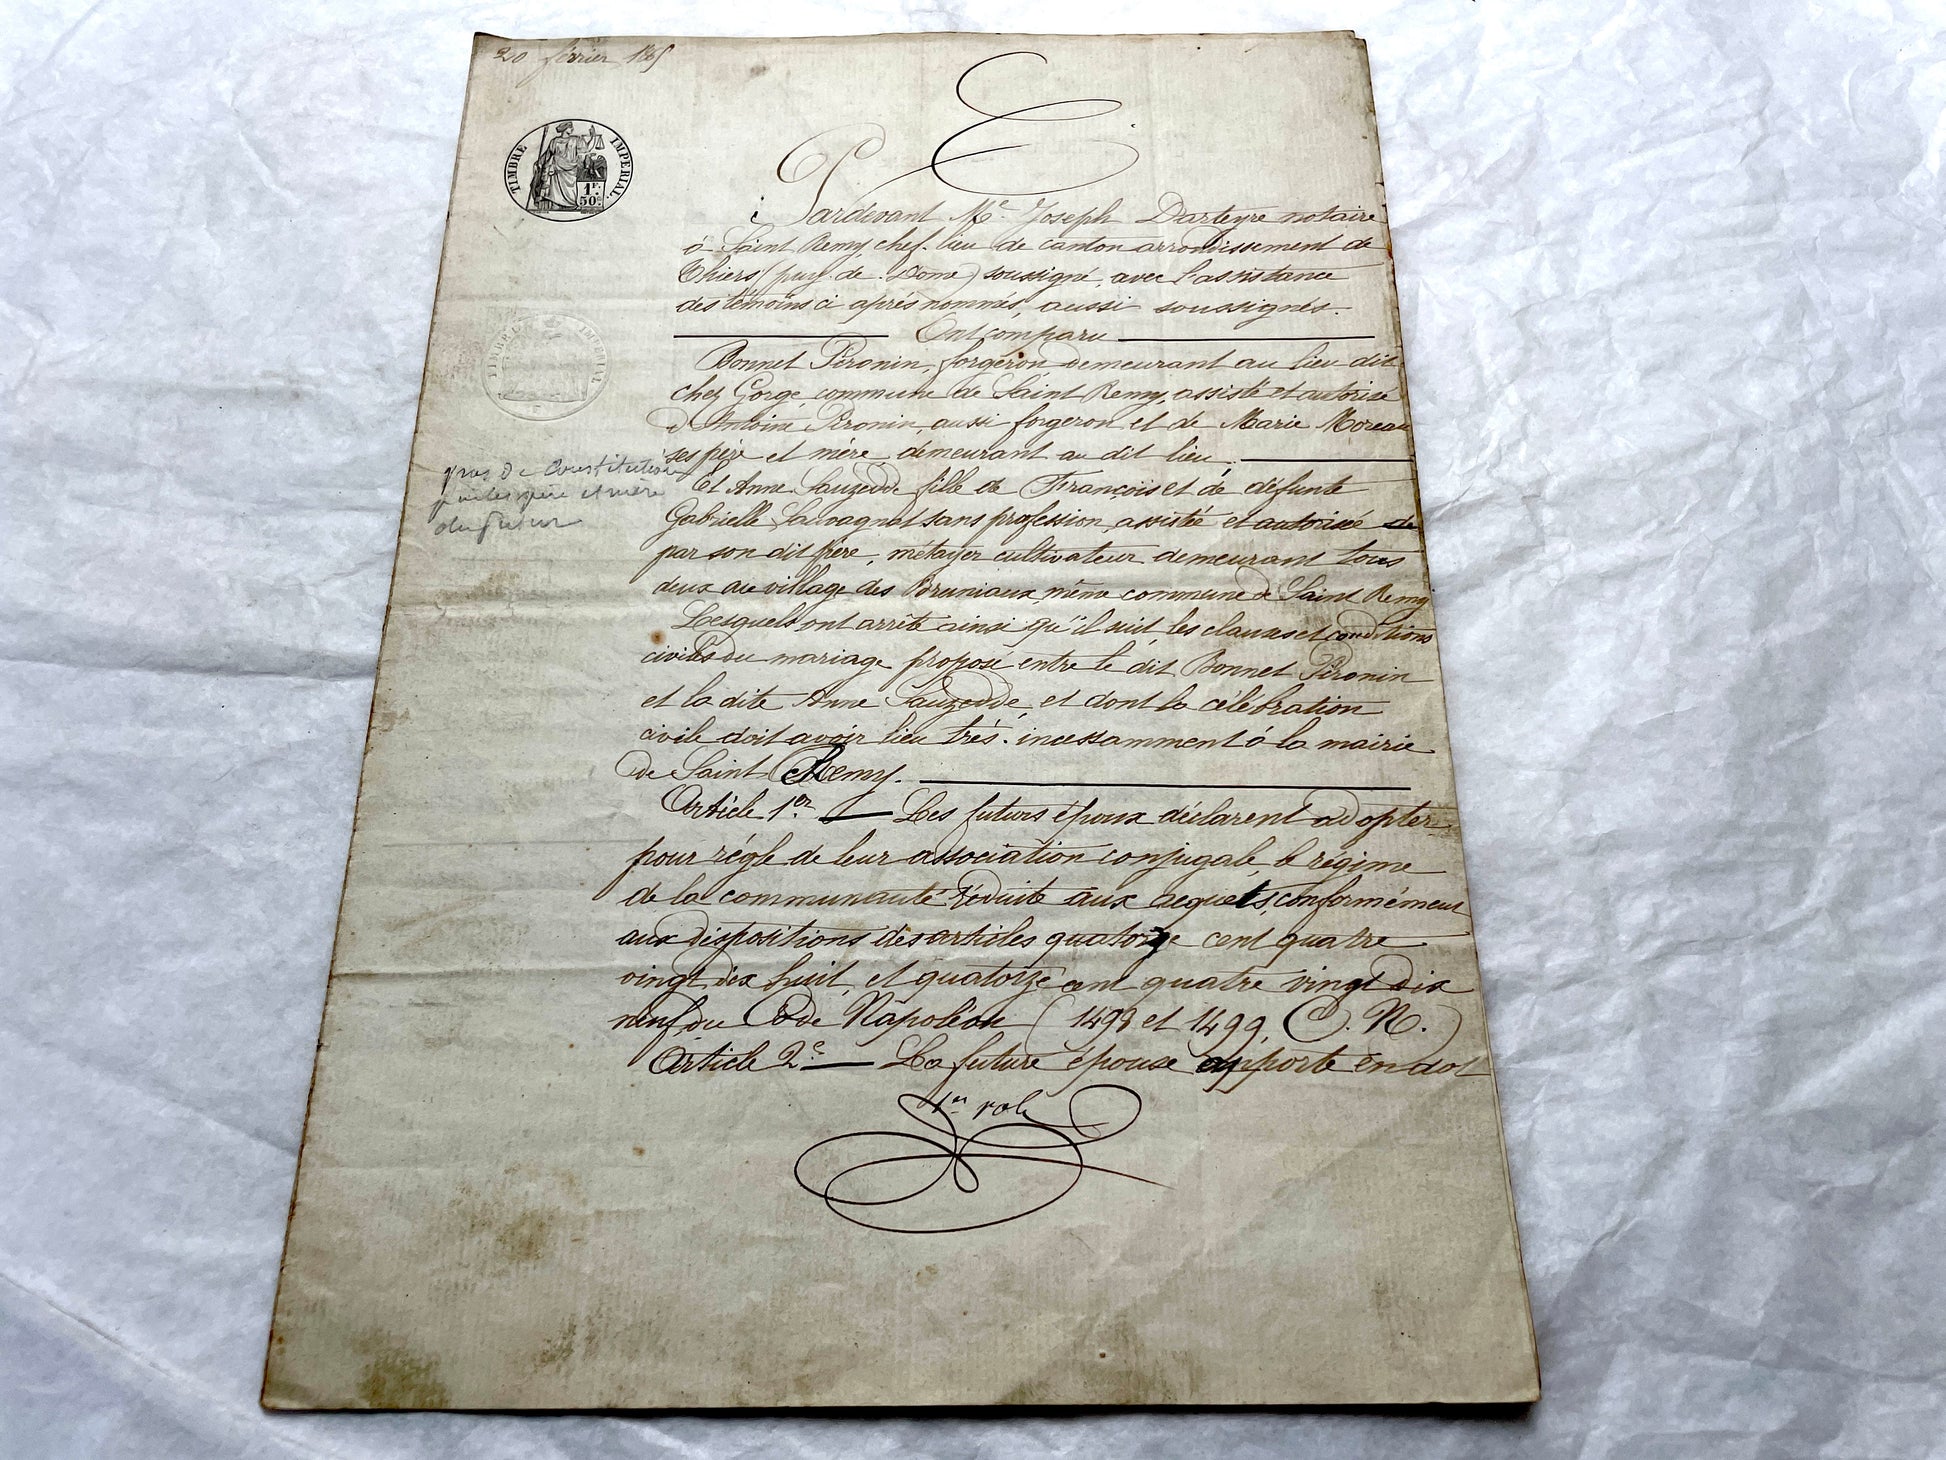 20 février 1865
TIMBRE IMPERIAL
1F.
50c.
Pardevant Me. Joseph Darteyre notaire
à Saint Remy, chef-lieu de canton arrondissement de
Thiers (puy-de-Dome) soussigné, avec l'assistance
des témoins ci après nommés, aussi soussignés.
Ont comparu
Bonnet Pironin, forgeron demeurant au lieu dit
chez Gorge commune de Saint Remy, assisté et autorisé
d'Antoine Pironin, aussi forgeron et de Marie Moreau
ses père et mère demeurant au dit lieu,
pas de Constitution
père et mère
du futur
Et Anne Sauzedde fille de François et de défunte
Gabrielle Sauvagnat sans profession, assistée et autorisée de
par son dit père, métayer cultivateur demeurant tous
deux au village des Bruniaux, même commune de Saint Remy
Lesquels ont arrêté ainsi qu'il suit, les clauses et conditions
civiles du mariage proposé entre le dit Bonnet Pironin
et la dite Anne Sauzedde, et dont la célébration
civile doit avoir lieu très-incessamment à la mairie
de Saint Remy.
Article 1er. — Les futurs époux déclarent adopter
pour règle de leur association conjugale, le régime
de la communauté réduite aux acquets, conformément
aux dispositions des articles quatorze cent quatre
vingt dix huit, et quatorze cent quatre vingt dix
neuf du Code Napoléon (1498 et 1499, C. N.)
Article 2e. — La future épouse apporte en dot
1er role